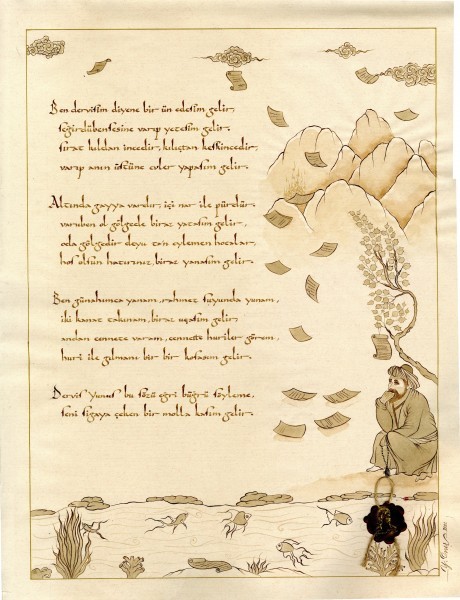 Ben dervişim diyene bir ün edesim gelir,
seğirdübensesine varıp yetesim gelir.
sırat kıldan incedir, kılıçtan keskincedir,
varıp anın üstüne evler yapasım gelir.
Altında gayya vardır, içi nar ile pürdür,
varuben ol gölgede biraz yatasım gelir,
oda gölgedir deyu ta'n eylemen hocalar,
hoş olsun hatırınız, biraz yanasım gelir.
Ben günahımca yanam, rahmet suyunda yunam,
iki kanat takınam, biraz uçasım gelir.
andan cennete varam, cennette huriler görem,
huri ile gılmanı bir bir koçasım gelir.
Derviş Yunus bu sözü eğri büğrü söyleme,
seni sigaya çeken bir molla kasım gelir.